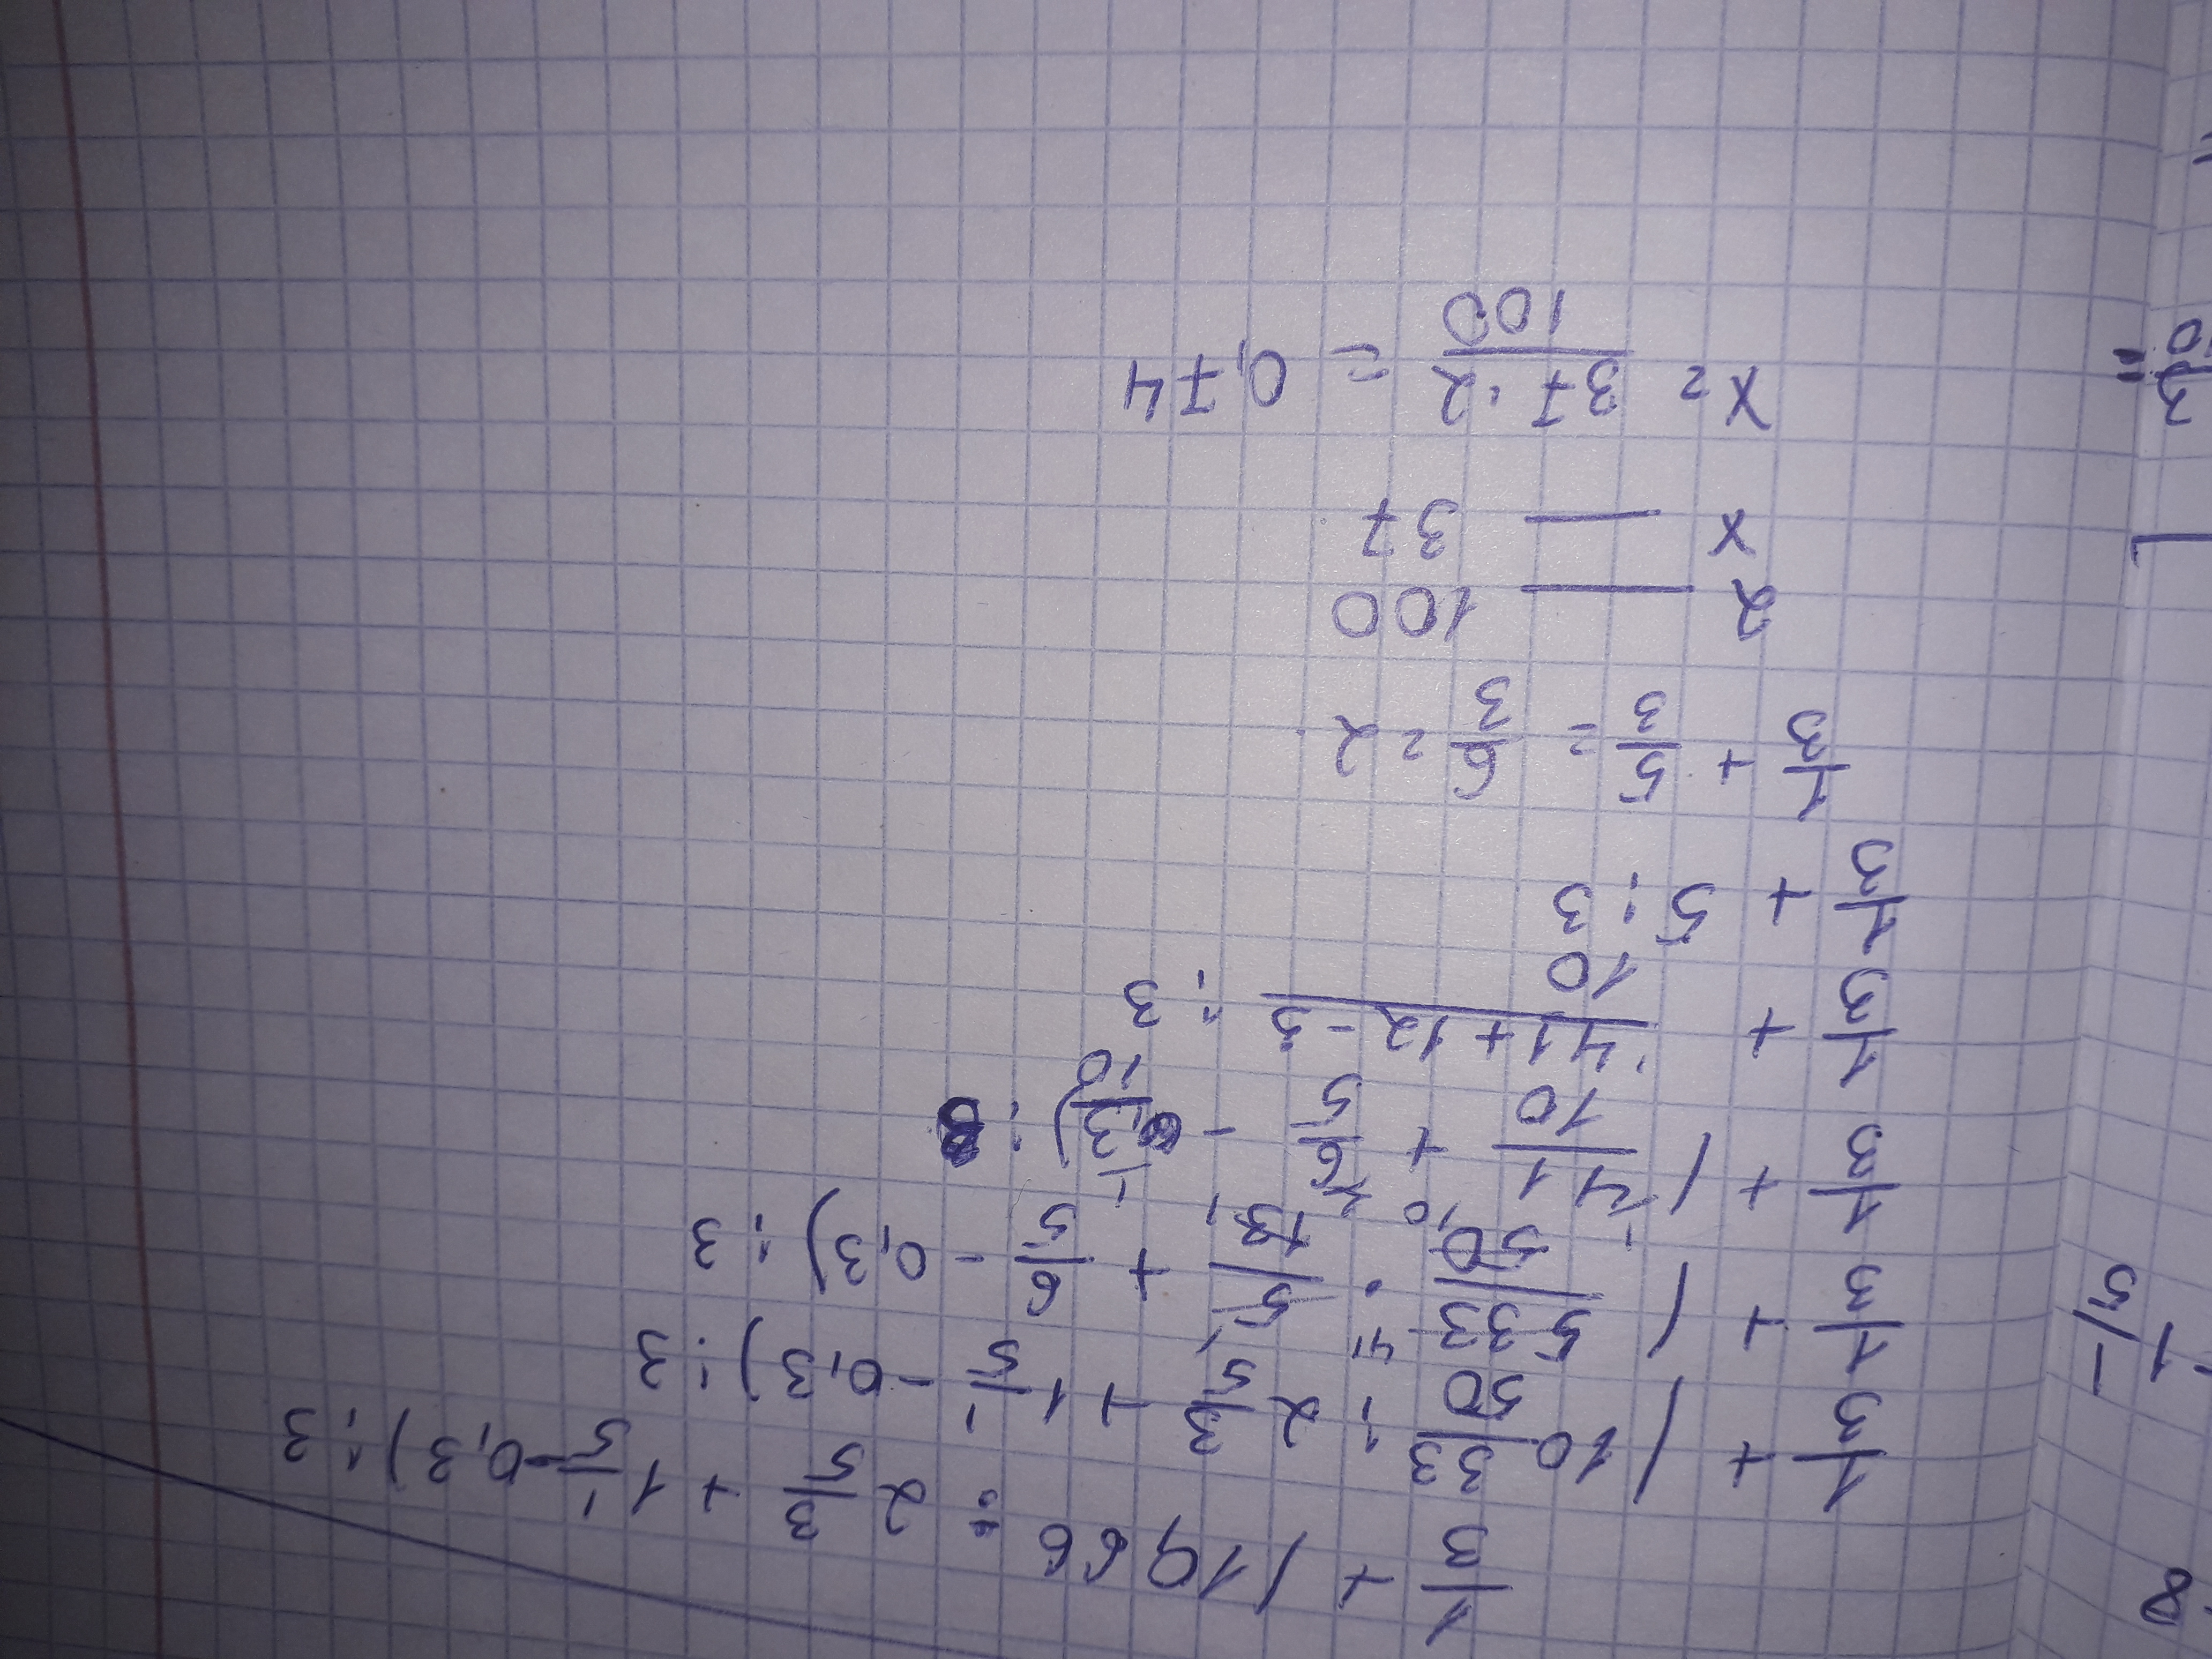 1/3 + (10,66 : 2 3/5 + 1 1/5 - 0,3) : 3
1/3 + (10 33/50 : 2 3/5 + 1 1/5 - 0,3) : 3
1/3 + (533/50 · 5/13 + 6/5 - 0,3) : 3
1/3 + (41/10 + 6/5 - 3/10) : 3
1/3 + 41+12-3/10 : 3
1/3 + 5 : 3
1/3 + 5/3 = 6/3 = 2
2 — 100
x — 37
x = 37·2/100 = 0,74